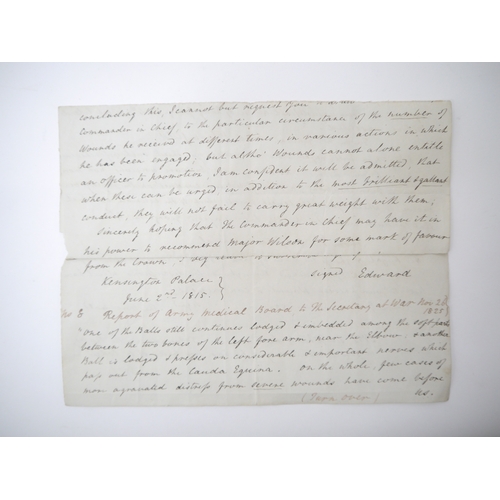 concluding this, I cannot but request you
Commander in Chief, to the particular circumstance of the number of
Wounds he received at different times, in various actions in which
he has been engaged, but altho' Wounds cannot alone entitle
an officer to promotion, I am confident it will be admitted, that
when these can be urged in addition to the most brilliant & gallant
conduct, they will not fail to carry great weight with them.
Sincerely hoping that the Commander in Chief may have it in
his power to recommend Major Wilson for some mark of favour
from the Crown
Kensington Palace signed Edward
June 2nd 1815.
No 6 Report of Army Medical Board to the Secretary at War Nov 2
182
"One of the Balls still continues lodged & imbedded among the soft parts
between the two bones of the left fore arm, near the Elbow, another
Ball is lodged & presses on considerable & important nerves which
pass out from the Cauda Equina. On the whole, few cases of
more agravated distress from severe wounds have come before
us.
(Turn over)